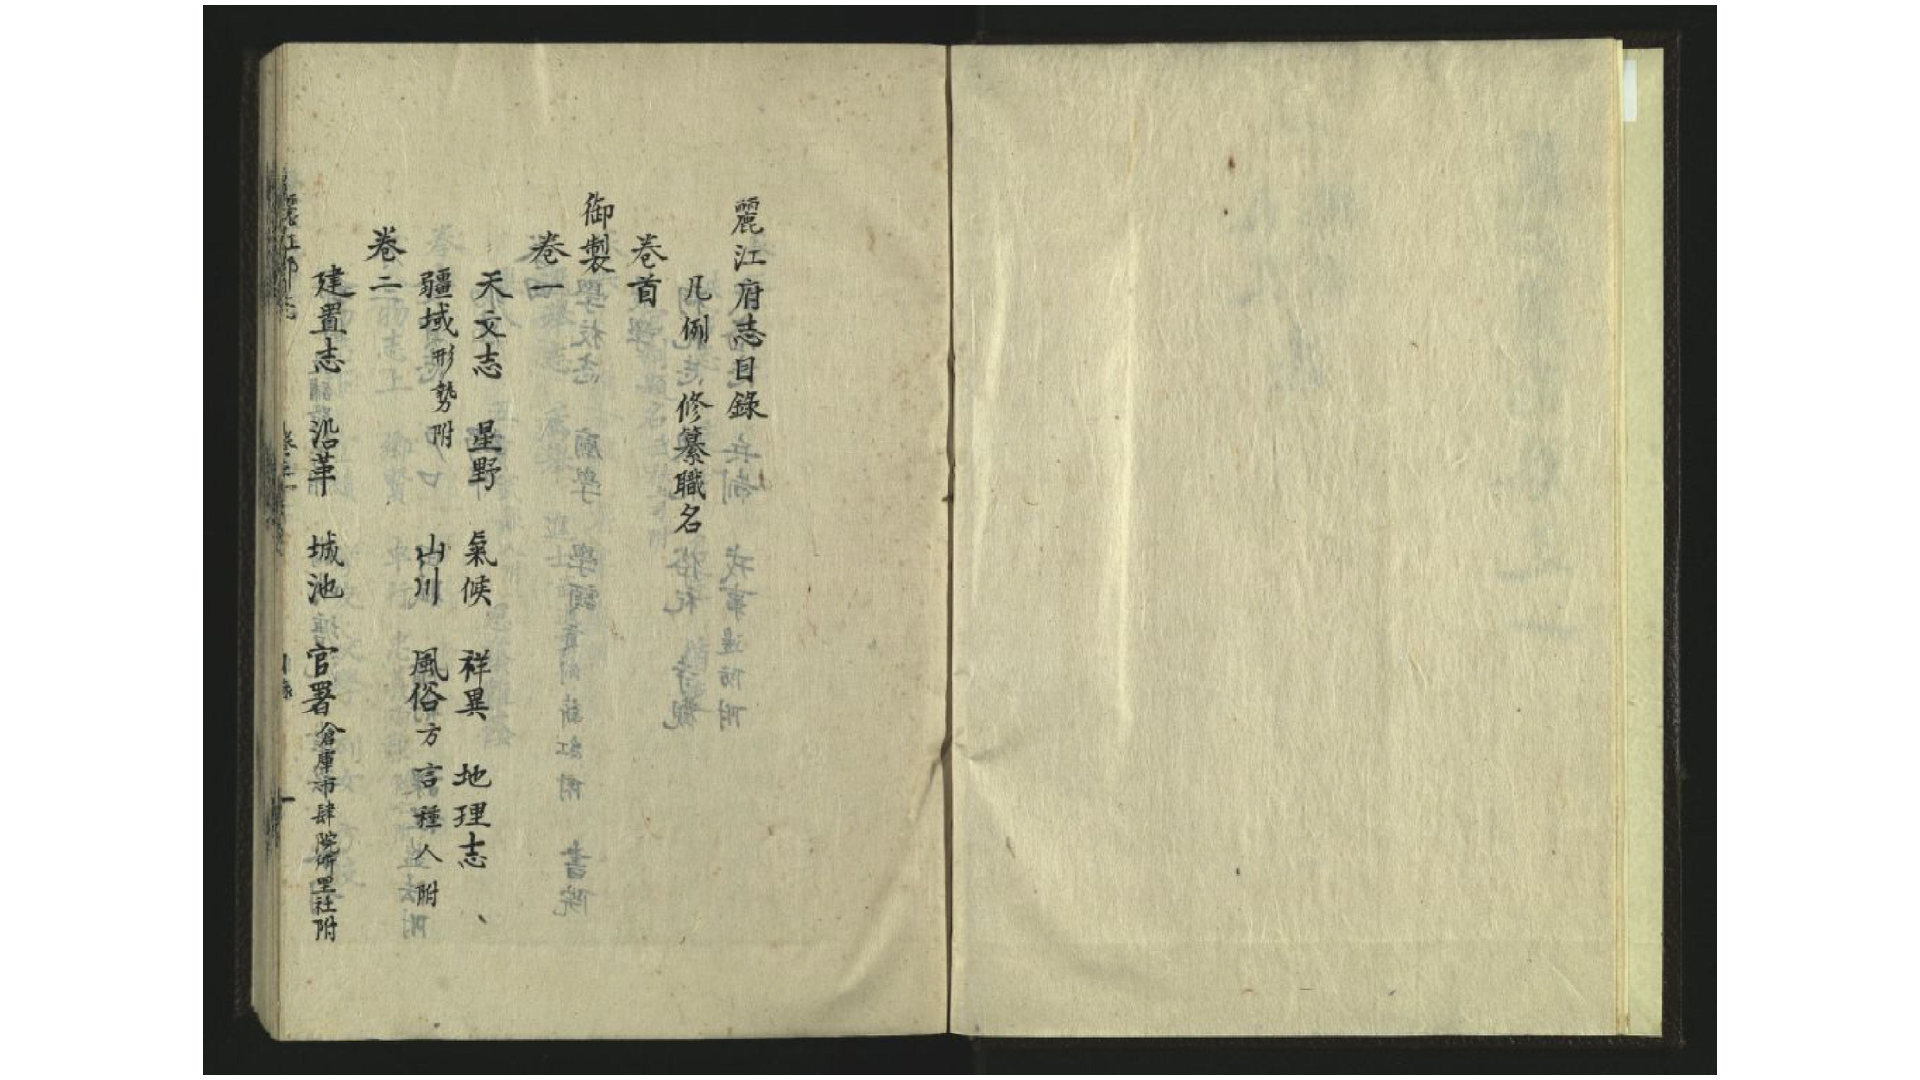 麗江府志目錄
凡例 修纂職名
卷首
御製
卷一
天文志 星野 氣候 祥異 地理志、
疆域形勢附 山川 風俗方言種人附
卷二
建置志 沿革 城池 官署倉庫市肆院所里社附